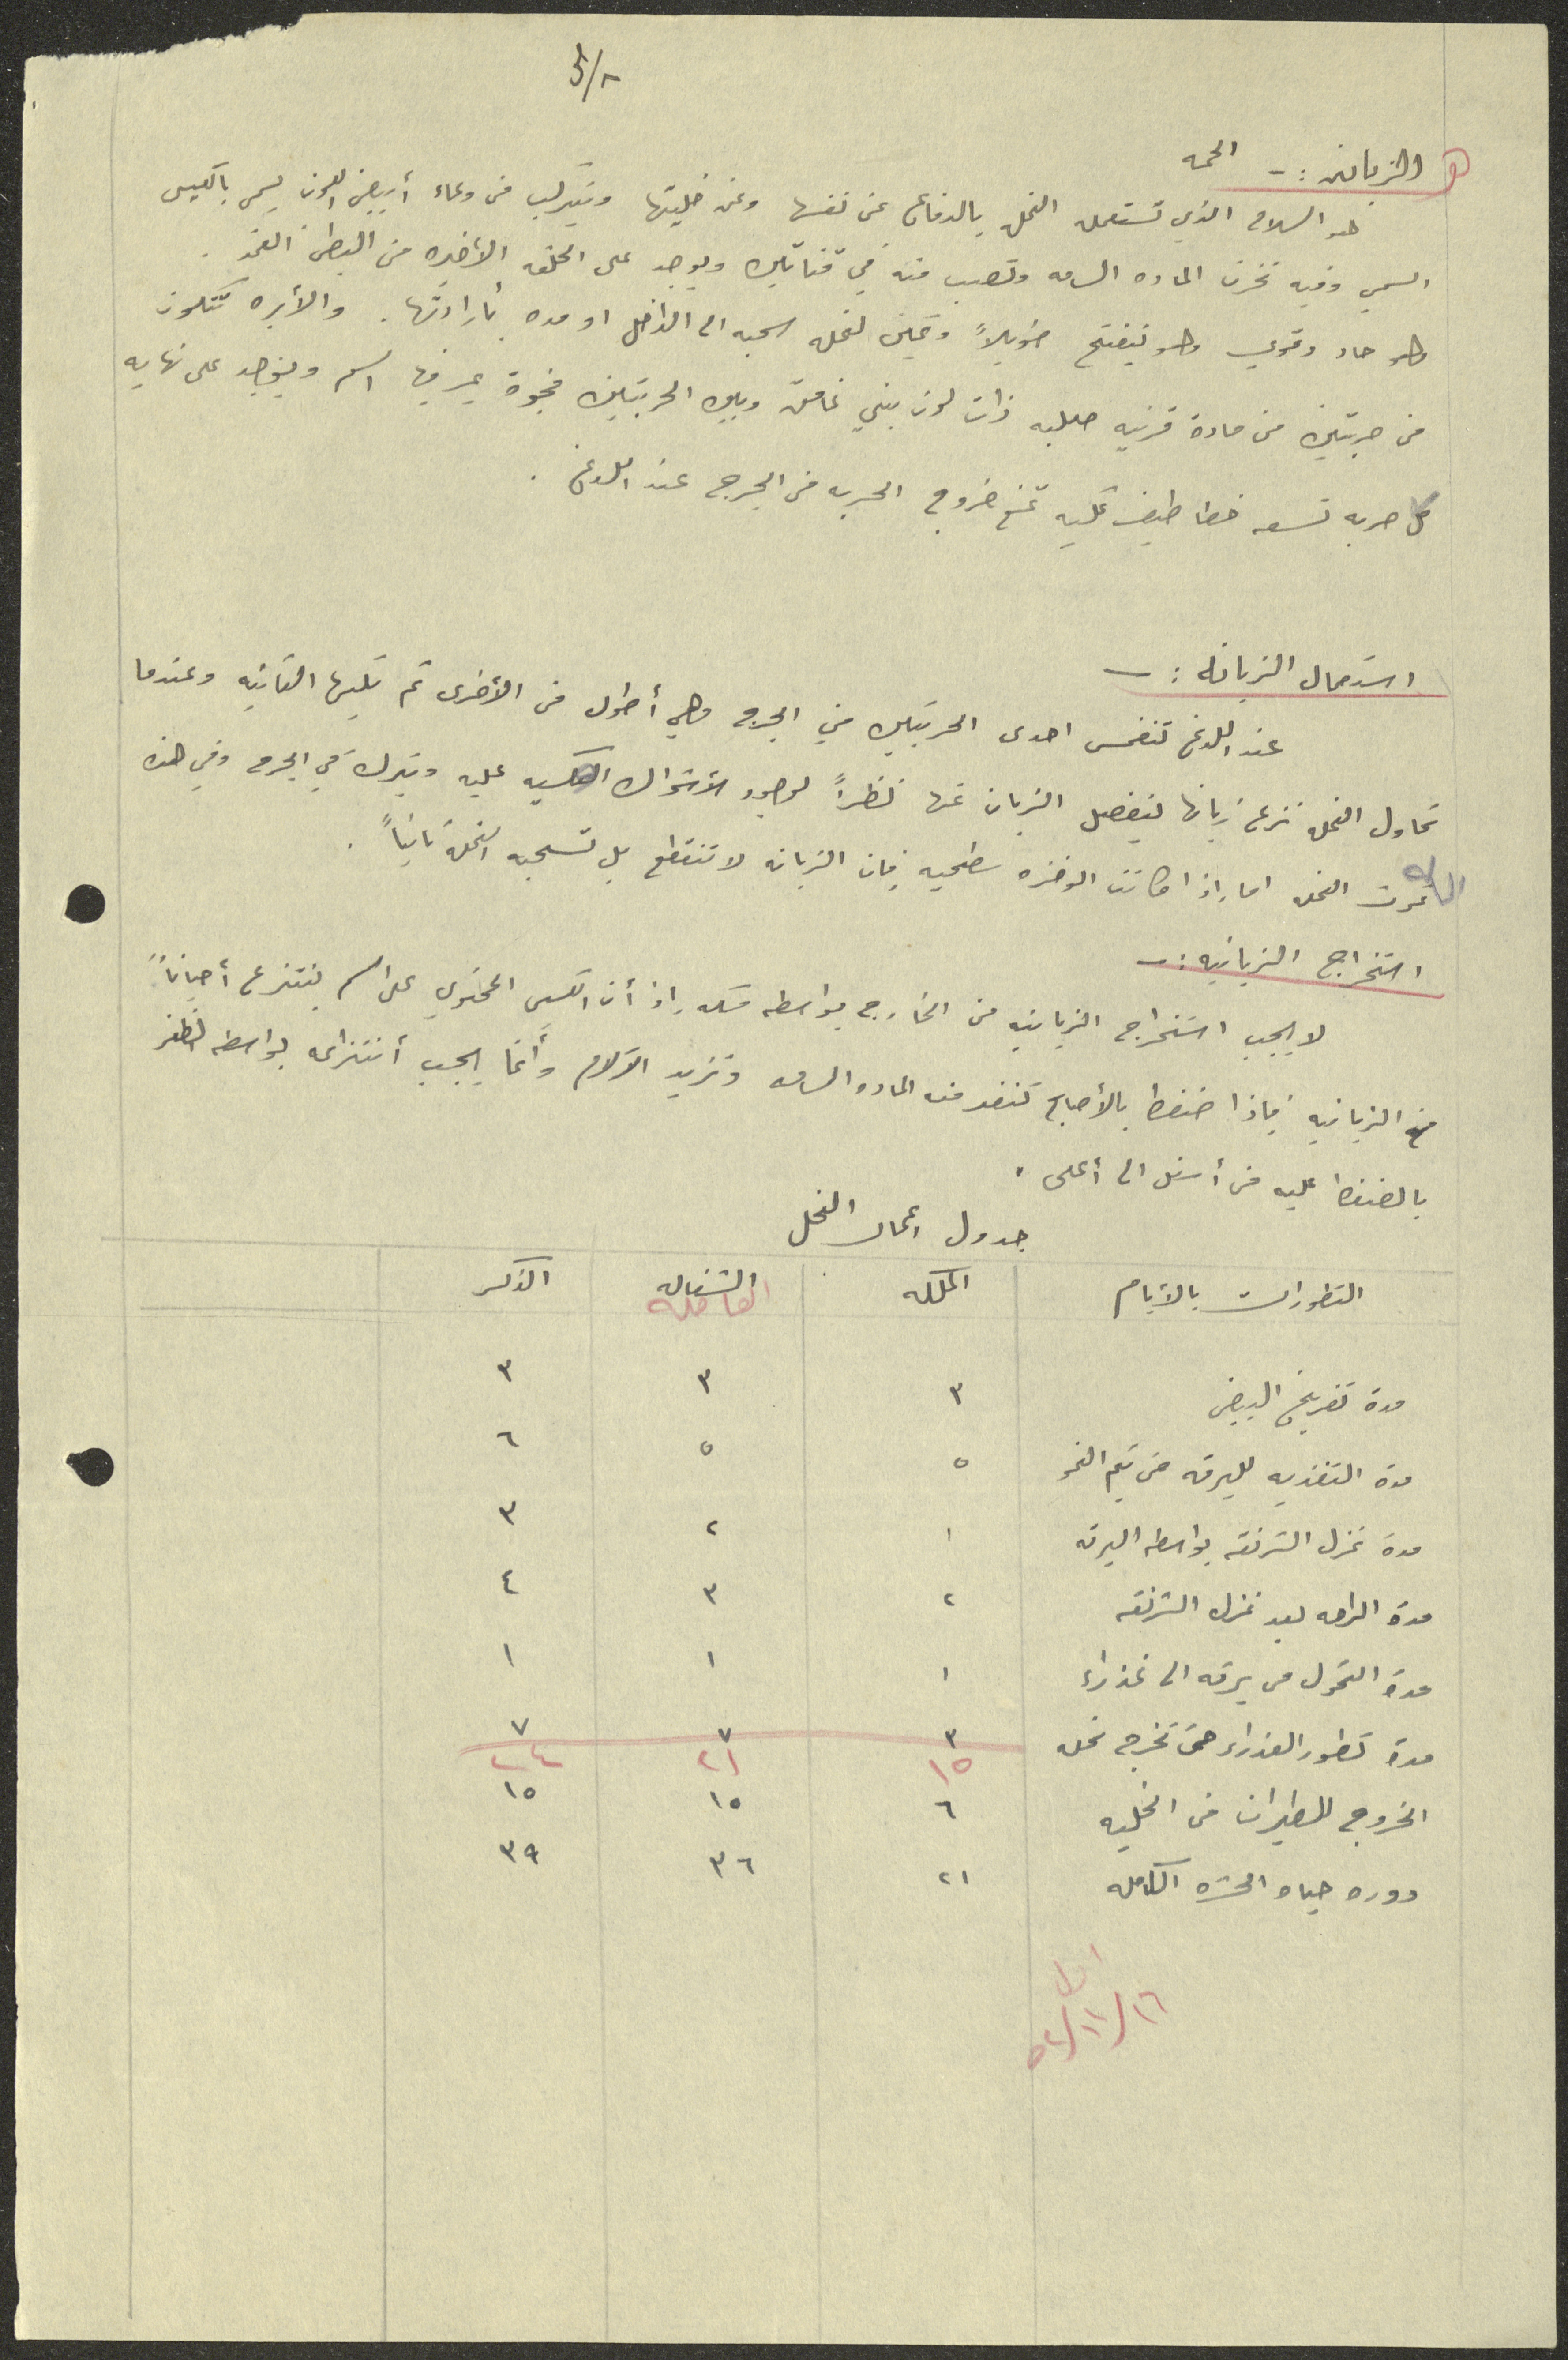 الزبانه :- الحمه
هو السلاح الذي تستعمله النحل بالدفاع عن نفسها وعن خليتها ويتركب من وعاء أبيض اللون يسمى بالكيس
السمي وفيه تخزن الماده السامه وتصب منه في قناتين ويوجد على الحلقه الأخيره من البطن الغمد .
وهو حاد وقوي وهو ينفتح طويلاً ويمكن للنحله سحبه الى الداخل او مده بأرادتها . والأبره تتكون
من حربتين من مادة قرنيه صلبه ذات لون بني غامق وبين الحربتين فجوة يمر فيها السم ويوجد على نهايه
كل حربه تسعه خطاطيف تمنع خروج الحربه من الجرح عند اللدغ .
استعمال الزبانه :-
عند اللدغ تنغمس احدى الحربتين في الجرح وهي أطول من الأخرى ثم تليها الثانيه وعندما
تحاول النحله نزع زبانها ينفصل الزبان عنها نظراً لوجود الأشواك العكسيه عليه ويترك في الجرح وفي هذه
الحاله تموت النحله اما إذا كانت الوخزه سطحيه فان الزبانه لا تنقطع بل تسحبه النحله ثانياً .
استخراج الزبانيه :-
لا يجب استخراج الزبانيه من الخارج بواسطه مسكه إذ أن الكيس المحتوي على السم ينتزع أحياناً
مع الزبانيه فإذا ضغط بالأصابع تنفذ منه الماده السامه وتزيد الآلام وأنما يجب أنتزاعه بواسطه الظفر
بالضغط عليه من أسفل الى أعلى .
جدول اعمال النحل
التطورات بالأيام الملكه الشغاله الذكر
العامله
مدة تفريخ البيض ٣ ٣ ٣
مدة التغذيه لليرقه حتى يتم النمو ٥ ٥ ٦
مدة غزل الشرنقه بواسطه اليرقه ١ ٢ ٣
مدة الراحه بعد غزل الشرنقه ٢ ٣ ٤
مدة التحول من يرقه الى عذراء ١ ١ ١
مدة تطور العذراء حتى تخرج نحله ٣ ٧ ٧
١٥ ٢١ ٢٤
الخروج للطيران من الخليه ٦ ١٥ ١٥
دوره حياه الحشره الكامله ٢١ ٣٦ ٣٩
١٦/١١/٥٢